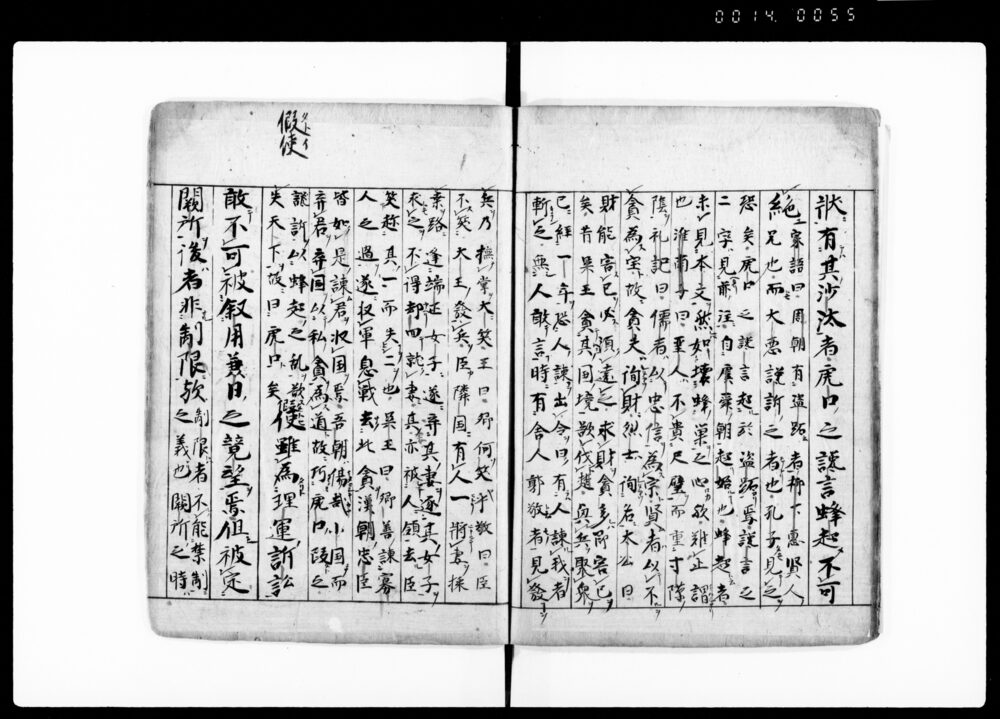 0014.0055
状有其沙汰者虎口之讒言蜂起不可
絶家語曰周朝有盗跖者柳下惠賢人
兄也而大悪讒訴之者也孔子見之
恐矣虎口之讒言起於盗跖焉讒言之
二字見前注自虞舜朝起始也蜂起者
未見本文然如壊蜂巣之心欲難正謂
也淮南子曰聖人不貴尺璧而重寸陰
陰礼記曰儒者以忠信為宗賢者以不
貪為宝故貪夫徇財烈士徇名太公曰
財能害已必須遠之求財貪多即害已
矣昔呉王貪其国境欲伐趙與兵聚衆
已経一年恐人諫出令曰有人諫我者
斬之無人敢言時有舎人郭敬者見發
兵乃撫掌大笑王曰卿何笑汗敬曰臣
不笑大王發兵臣隣国有人一将妻採
桒路逢端正女子遂弃其妻逐其女子
衣之不得却四就妻其亦被人領去臣
笑趁其一而失二也呉王曰卿善諫寡
人之過遂収軍息戦去此貪漢朝忠臣
皆如是諫君収国焉吾朝傷哉小国而
弃君弃国以私貪為道故巧虎口段之
讒訴以蜂起之乱欲
失天下故曰虎口矣假使雖為理運訴訟
假使
タトイ
敢不可被叙用兼日之競望焉但被定
闕所後者非制限欤制限者不能禁制
之義也闕所之時